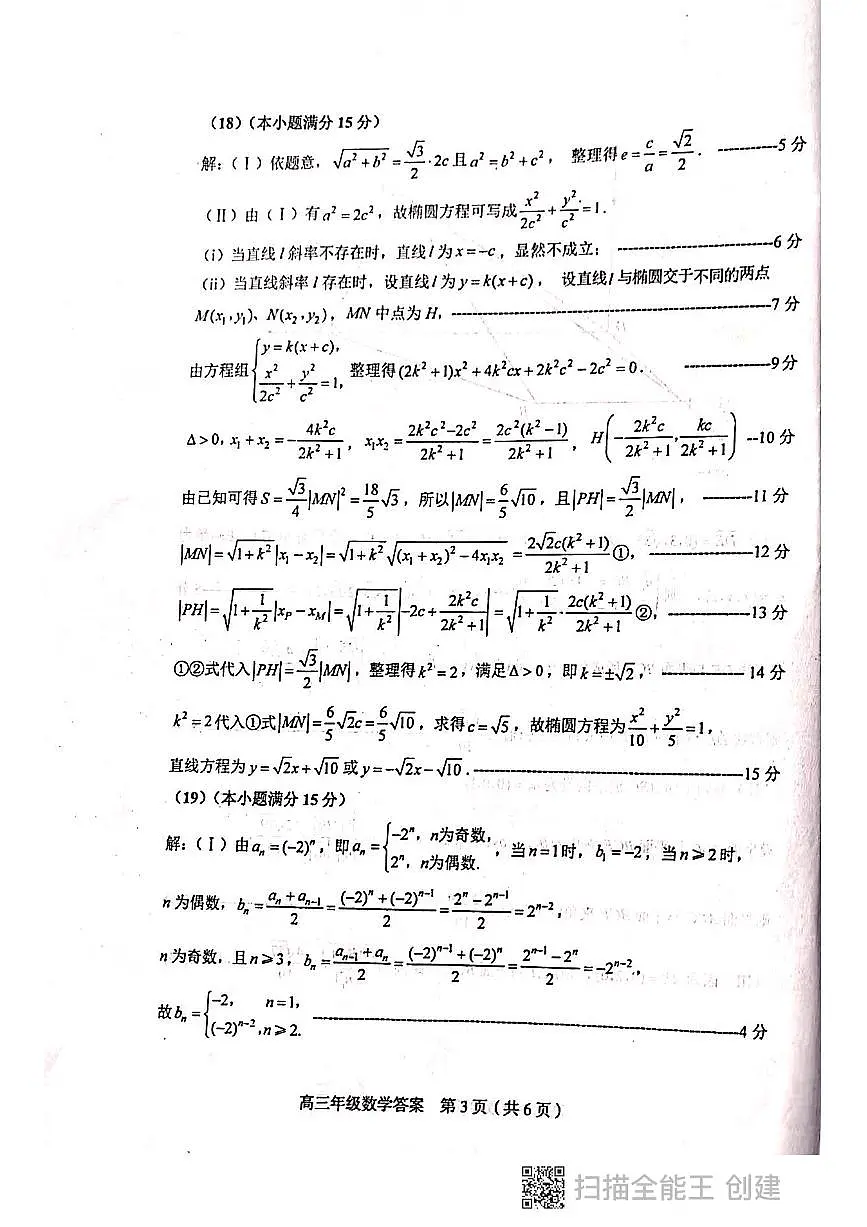 (18)(本小题满分 15 分)
解:(Ⅰ)依题意,√(a²+b²) = (√3/2)·2c 且 a² = b² + c², 整理得 e = c/a = √2/2. -----------5 分
(Ⅱ)由(Ⅰ)有 a² = 2c²,故椭圆方程可写成 x²/(2c²) + y²/c² = 1.
(i)当直线 l 斜率不存在时,直线 l 为 x = -c,显然不成立; -----------6 分
(ii)当直线斜率 l 存在时,设直线 l 为 y = k(x+c), 设直线 l 与椭圆交于不同的两点
M(x₁,y₁)、N(x₂,y₂),MN 中点为 H, -----------7 分
由方程组 { y = k(x+c), x²/(2c²) + y²/c² = 1, 整理得 (2k²+1)x² + 4k²cx + 2k²c² - 2c² = 0. -----------9 分
Δ > 0, x₁ + x₂ = -4k²c/(2k²+1), x₁x₂ = (2k²c²-2c²)/(2k²+1) = 2c²(k²-1)/(2k²+1), H(-2k²c/(2k²+1), kc/(2k²+1)) --10 分
由已知可得 S = (√3/4)|MN|² = (18/5)√3,所以 |MN| = (6/5)√10,且 |PH| = (√3/2)|MN|, --------11 分
|MN| = √(1+k²)|x₁ - x₂| = √(1+k²)√((x₁+x₂)² - 4x₁x₂) = 2√2c(k²+1)/(2k²+1) ①, -----------12 分
|PH| = √(1+1/k²)|x_P - x_M| = √(1+1/k²)|-2c + 2k²c/(2k²+1)| = √(1+1/k²)·2c(k²+1)/(2k²+1) ②, -----------13 分
①②式代入 |PH| = (√3/2)|MN|,整理得 k² = 2,满足 Δ > 0,即 k = ±√2, ----------- 14 分
k² = 2 代入①式 |MN| = (6/5)√2c = (6/5)√10,求得 c = √5,故椭圆方程为 x²/10 + y²/5 = 1,
直线方程为 y = √2x + √10 或 y = -√2x - √10. -----------15 分
(19)(本小题满分 15 分)
解:(Ⅰ)由 aₙ = (-2)ⁿ,即 aₙ = { -2ⁿ,n为奇数, 2ⁿ,n为偶数. ,当 n = 1 时,b₁ = -2,当 n ≥ 2 时,
n 为偶数,bₙ = (aₙ + aₙ₋₁)/2 = ((-2)ⁿ + (-2)ⁿ⁻¹)/2 = (2ⁿ - 2ⁿ⁻¹)/2 = 2ⁿ⁻²,
n 为奇数,且 n ≥ 3,bₙ = (aₙ₋₁ + aₙ)/2 = ((-2)ⁿ⁻¹ + (-2)ⁿ)/2 = (2ⁿ⁻¹ - 2ⁿ)/2 = -2ⁿ⁻²,
故 bₙ = { -2, n = 1, (-2)ⁿ⁻², n ≥ 2. -----------4 分
高三年级数学答案 第 3 页(共 6 页)
扫描全能王 创建